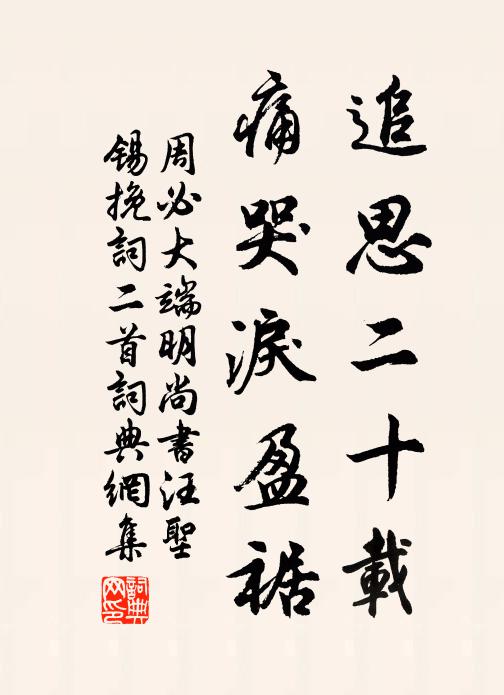 追思二十載
痛哭淚盈裾
周必大端明尚書汪聖
錫挽詞二首詞典網集
詞典
网印